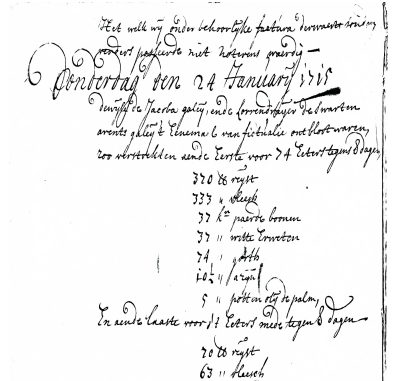 Het welk wij onder behoorlijke factura
verders passeerde niet noterens waerdig
Donderdag den 24 Januarij 1715
dewijl de Jacoba galeij, ende de swarten
arents galeij t Eenemael van victualie ontbloot waren,
zoo verstrekten aende Eerste voor 74 Eeters tegens 8 dagen,
370 lb rijst
333 " vleesch
37 kn paerde boonen
37 " witte Erweten
74 "
10½ " azijn
5 " potten olij de palm,
En aende laatste voor Eeters mede tegen 8 dagen
70 lb rijst
63 " vleesch